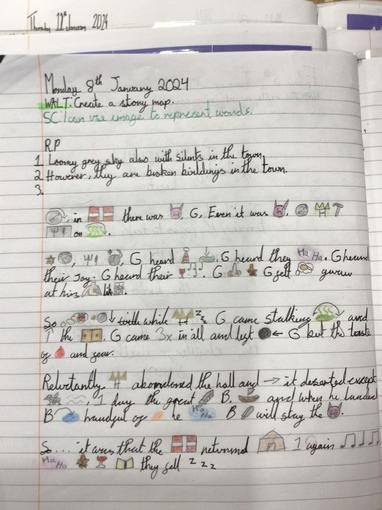 Thursday 11th January 2024
Monday 8th January 2024
WALT. Create a story map.
SC I can use image to represent words.
R.P
1. Looney grey sky also with silents in the town
2. However, they are broken buildings in the town.
3.
in there was G. Even it was
on
G heard G heard they Ha Ha. G heard
their Joy. G heard their G G felt
at his
So while zz G came stalking and
the G came 3x in all and left G but the taste
of and gear.
Reluctantly H abandoned the hall and it deserted except
1 day the great B. and when he landed
B handful of he Ha Ha B will slay the
S... it was that the returned 1 again
Ha Ha they fell z z z